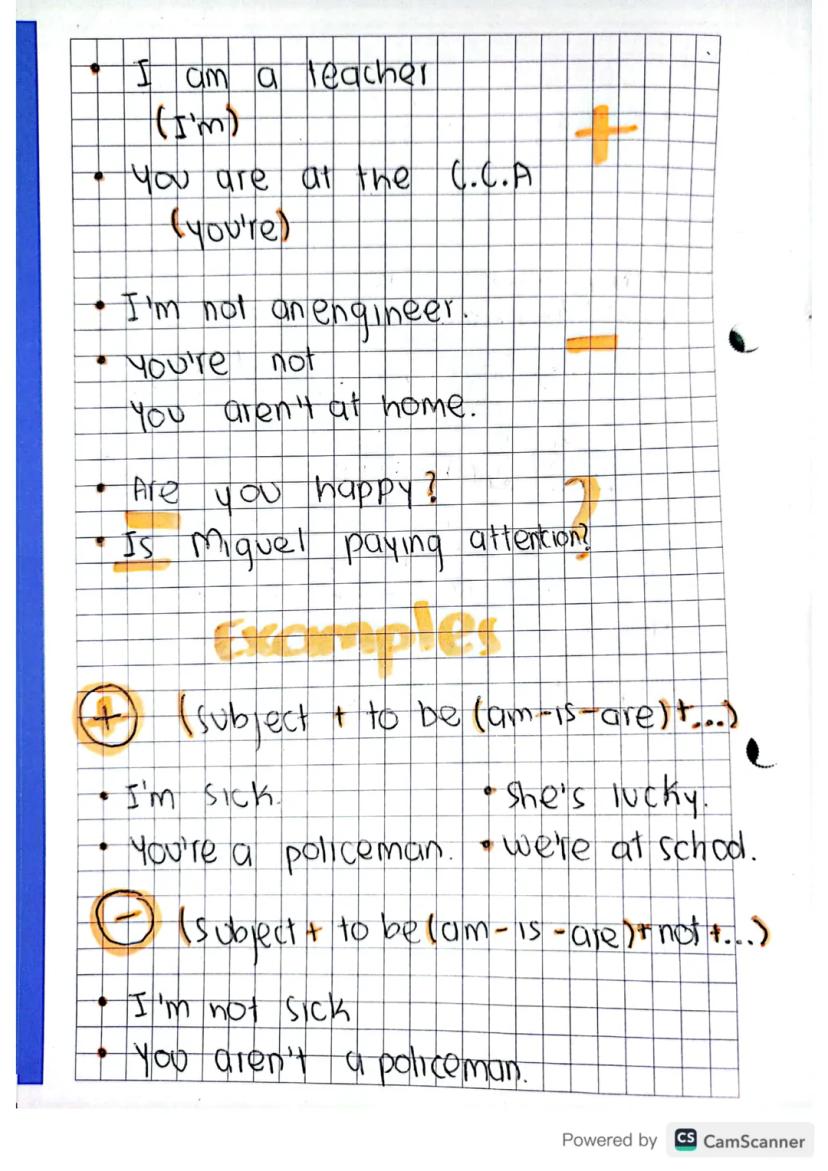 • I am a teacher
(I'm)
+
• You are at the C.C.A
(you're)
• I'm not an engineer.
• You're not
-
You aren't at home.
• Are you happy?
?
• Is Miguel paying attention?
Examples
+ (subject + to be (am-is-are)+...)
• I'm sick. • She's lucky.
• You're a policeman. • we're at school.
- (subject + to be (am-is-are)+not+...)
• I'm not sick
• You aren't a policeman.
Powered by CS CamScanner